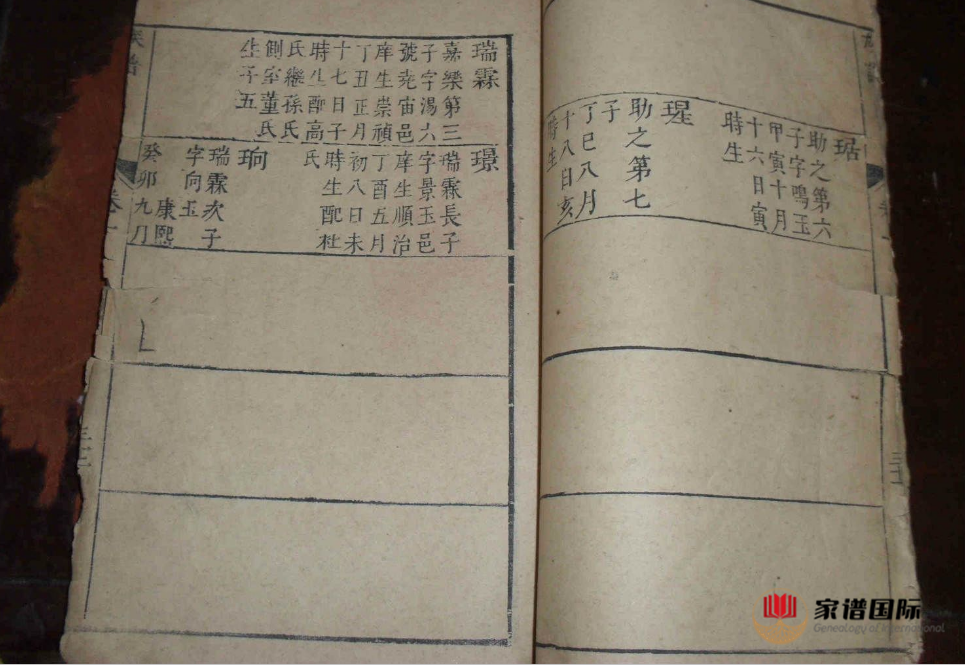 琚
助之第六
子字鳴玉
甲寅十月
十六日寅
時生
瑆
助之第七
子
丁巳八月
十八日亥
時生
瑞霖
嘉樂第三
子字湯六
號堯宙邑
庠生崇禎
丁丑正月
十七日子
時生配高
氏繼孫氏
側室董氏
生子五
璟
瑞霖長子
字景玉邑
庠生順治
丁酉五月
初八日未
時生配杜
氏
珦
瑞霖次子
字向玉
康熙
癸卯九月
家谱国际
Genealogy of International